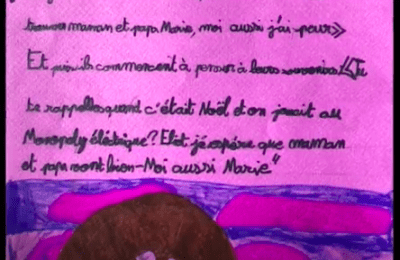 maman et papa Marie, moi aussi j'ai peur»
Et puis ils commencent à penser à leurs souvenirs «Tu
te rappelles quand c'était Noël et on jouait au
Monopoly éléctrique? Et et j'éspére que maman
et papa vont bien-Moi aussi Marie"